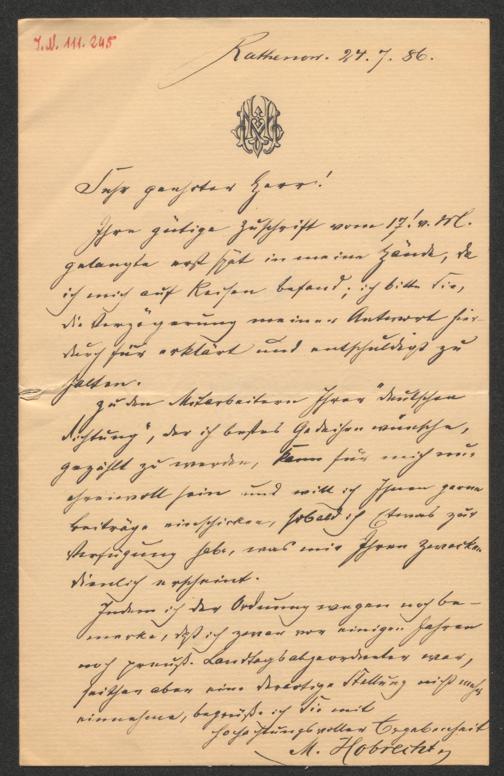 J.N. 111.245
Rathenow. 24.7.86.
Sehr geehrter Herr!
Ihre gütige Zuschrift vom 17! v. M.
gelangte erst spät in meine Hände, da
ich mich auf Reisen befand; ich bitte Sie,
die Verzögerung meiner Antwort hier-
durch für erklärt und entschuldigt zu
halten.
Zu den Mitarbeitern Ihrer "deutschen
Dichtung", der ich bestes Gedeihen wünsche,
gezählt zu werden, kann für mich nur
ehrenvoll sein und will ich Ihnen gerne
Beiträge einschicken, sobald ich Etwas zur
Verfügung habe, was mir Ihren Zwecken
dienlich erscheint.
Indem ich der Ordnung wegen noch be-
merke, daß ich zwar vor einigen Jahren
noch preuß. Landtagsabgeordneter war,
seither aber eine derartige Stellung nicht mehr
einnehme, begrüße ich Sie mit
hochachtungsvoller Ergebenheit
M. Hobrecht